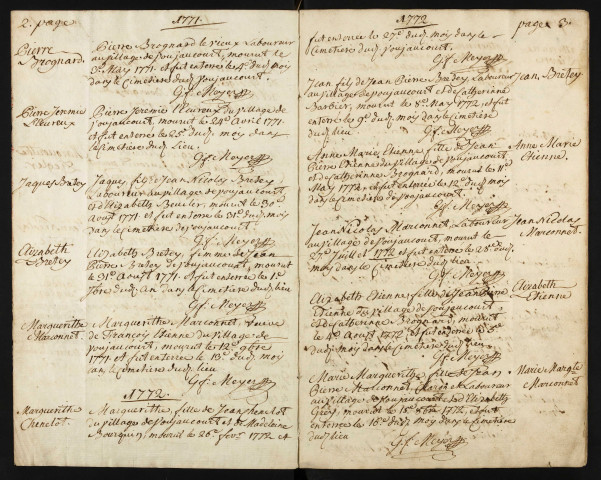 2. page
1771.
Pierre
Brognard
Pierre Brognard le vieux Laboureur
au pillage de poujaucourt, mourut le
3e. May 1771. et fut enterré le 4e. dudj. mois
dans le cimetière dudj. poujaucourt.
Gf. Meyer
Pierre Jeremie
L'heureux
Pierre Jeremie L'heureux du pillage de
poujaucourt, mourut le 24e. Avril 1771.
et fut enterré le 25e. dudj. mois dans
le cimetiere dudj. Lieu.
Gf. Meyer
Jaques Bretey
Jaques fils de Jean Nicolas Bretey
Laboureur au pillage de poujaucourt
et d'Elizabeth mourut le 30e.
Aoust 1771. et fut enterré le 31e. dudj. mois
dans le cimetiere de poujaucourt.
Gf. Meyer
Elizabeth
Bretey
Elizabeth Bretey, femme de Jean
Pierre Bretey de poujaucourt, mourut
le 31e. Aoust 1771. et fut enterrée le 1e.
7bre dudj. an dans le cimetiere dudj. lieu
Gf. Meyer
Marguerithe
Marconnet.
Marguerithe Marconnet, veuve
de François Etienne du pillage de
poujaucourt, mourut le 12e.
1771. et fut enterrée le 13e. dudj. mois
au cimetiere dudj. lieu.
Gf. Meyer
1772.
Marguerithe
Chenelot.
Marguerithe, fille de Jean Chenelot
du pillage de poujaucourt et de Madelaine
Bourquin, mourut le 26e. fevr. 1772. et
1772
page 3.
fut enterrée le 27e. dudj. mois dans le
cimetiere dudj. poujaucourt.
Gf. Meyer
Jean fils de Jean Pierre Bretey Laboureur
au pillage de poujaucourt et de Catherinne
Barbier, mourut le 8e. May 1772. et fut
enterré le 9e. dudj. mois dans le cimetiere
dudj. lieu
Gf. Meyer
Jean Bretey
Anne Marie, Etienne fille de Jean
Pierre Etienne du pillage de poujaucourt
et de Catherinne Brognard, mourut le 11e.
May 1772. et fut enterrée le 12e. dudj. mois
dans le cimetiere de poujaucourt.
Gf. Meyer
Anne Marie
Etienne.
Jean Nicolas Marconnet, Laboureur
au pillage de poujaucourt, mourut le
27e. Juillet 1772. et fut enterré le 28e. dudj.
mois dans le cimetiere dudj. lieu.
Gf. Meyer
Jean Nicolas
Marconnet.
Elizabeth Etienne, fille de Jean
Etienne du pillage de poujaucourt
et de Catherinne Brognard, mourut
le 4e. Aoust 1772. et fut enterrée le 5e.
dudj. mois dans le cimetiere dudj. lieu
Gf. Meyer
Elizabeth
Etienne
Marie Marguerithe, fille de Jean
Pierre Marconnet Laboureur
au pillage de poujaucourt et d'Elizabeth
mourut le 15e. 8bre 1772. et fut
enterrée le 16e. dudj. mois dans le cimetiere
dudj. lieu
Gf. Meyer
Marie Margte
Marconnet.